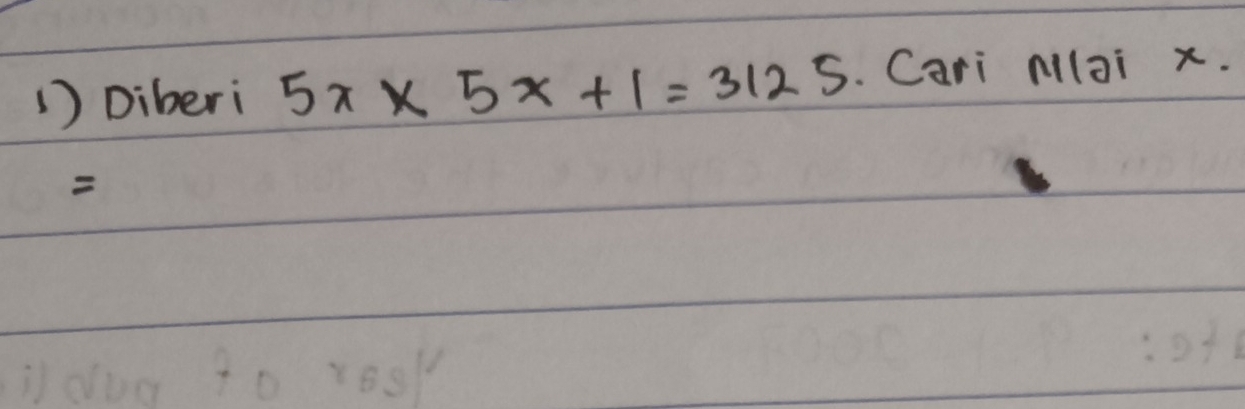 1) Diberi 5x × 5x + 1 = 3125. Cari nilai x.
=